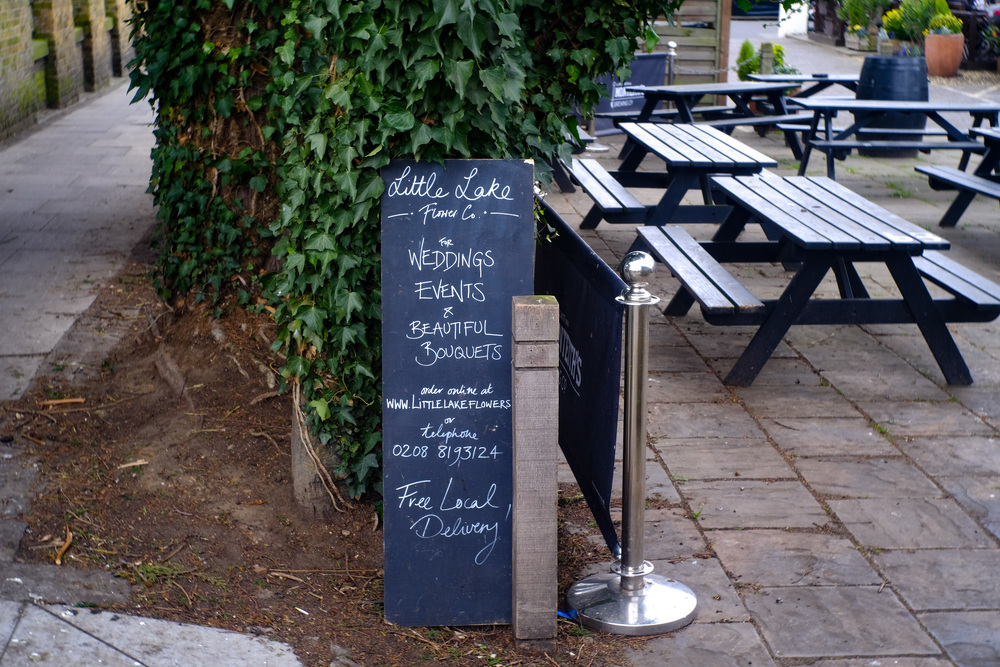 Little Lake
Flower Co.
FOR
WEDDINGS
EVENTS
&
BEAUTIFUL
BOUQUETS
order online at
WWW.LITTLELAKEFLOWERS
or
telephone
0208 8193124
Free Local
Delivery!